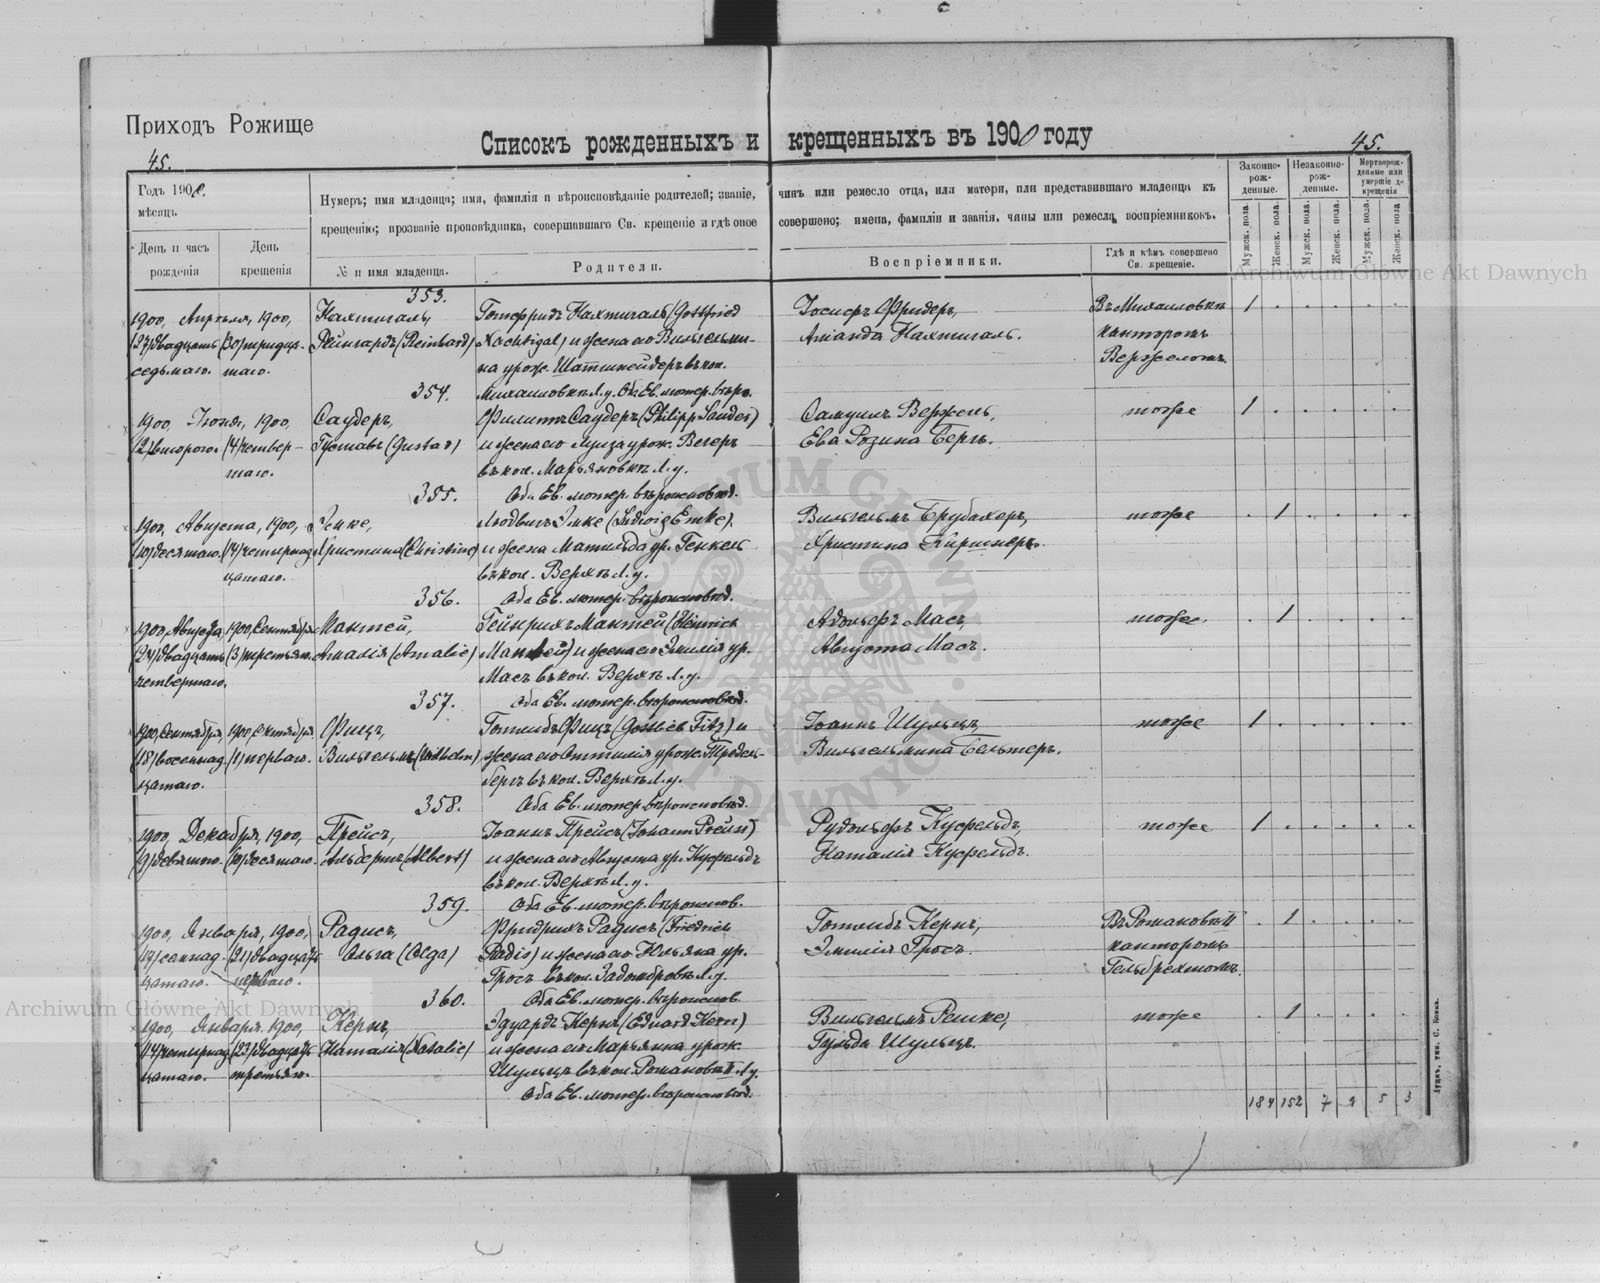 Приходъ Рожище
Списокъ рожденныхъ и крещенныхъ въ 1900 году
45.
45.
Годъ 1900.
мѣсяцъ
День и часъ рожденія
День крещенія
Нумеръ; имя младенца; имя, фамилія и вѣроисповѣданіе родителей; званіе, чинъ или ремесло отца, или матери, или представившаго младенца къ
крещенію; прозваніе проповѣдника, совершавшаго Св. крещеніе и гдѣ оное совершено; имена, фамиліи и званія, чины или ремесла, воспріемниковъ.
№ и имя младенца.
Родители.
Воспріемники.
Гдѣ и кѣмъ совершено Св. крещеніе.
Законно-рож-денные.
Незаконно-рож-денные.
Мертворож-денные или умершіе до крещенія
Мужск. пола.
Женск. пола.
Мужск. пола.
Женск. пола.
Мужск. пола.
Женск. пола.
353.
1900, Апрѣля, 1900, Нахтигаль, Готфридъ Нахтигаль (Gottfried Іосифъ Фридеръ, Въ Михаиловкѣ 1
(27) двадцать (30) тридца- Рейнгардъ (Reinhard) Nachtigal) и жена его Вильгельми- Аманда Нахтигаль. канторомъ
седьмаго. таго. на урож. Шатшнейдеръ въ кол.
354. Михаиловкѣ Л. у. Оба Ев. лютер. вѣро.
1900, Іюня, 1900, Саудеръ, Филиппъ Саудеръ (Philipp Sauder) Самуилъ тоже 1
(2) второго. (4) четвер- Густавъ (Gustav) и жена его Луиза урож. Вегеръ Ева Розина Бергъ.
таго. въ кол. Марьяновкѣ Л. у.
355. Оба Ев. лютер. вѣроисповѣд.
1900, Августа, 1900, Эмке, Людвигъ Эмке (Ludwig Emke) Вильгельмъ Брубахеръ, тоже 1
(10) десятаго. (14) четырнад- Христина (Christine) и жена Матильда ур. Генкель Христина Киршнеръ.
цатаго. въ кол. Верхѣ Л. у.
356. Оба Ев. лютер. вѣроисповѣд.
1900, Августа, 1900, Сентября Мантей, Гейнрихъ Мантей (Heinrich Адольфъ Масъ, тоже 1
(24) двадцать (3) третьяго. Амалія (Amalie) и жена его Эмилія ур. Августа Масъ.
четвертаго. Масъ въ кол. Верхѣ Л. у.
357. Оба Ев. лютер. вѣроисповѣд.
1900, Сентября, 1900, Октября Фицъ, Готлибъ Фицъ (Gottlieb Fitz) и Іоаннъ Шульцъ, тоже 1
(18) восемнад- (1) перваго. Вильгельмъ (Wilhelm) жена его Оттилія урож. Вильгельмина Бельтеръ.
цатаго. бергъ въ кол. Верхѣ Л. у.
358. Оба Ев. лютер. вѣроисповѣд.
1900, Декабря, 1900, Прейсъ, Іоаннъ Прейсъ (Johann Preuss) Рудольфъ Кусфельдъ, тоже 1
(9) девятаго. (10) десятаго. Альбертъ (Albert) и жена его Августа ур. Кусфельдъ Наталія Кусфельдъ.
въ кол. Верхѣ Л. у.
359. Оба Ев. лютер. вѣроисповѣд.
1900, Января, 1900, Радисъ, Фридрихъ Радисъ (Friedrich Готлибъ Кернъ, Въ Романовкѣ II 1
(17) семнад- (21) двадцать Ольга (Olga) Radis) и жена его Юльяна ур. Эмилія Гросъ. канторомъ
цатаго. перваго. Гросъ въ кол. Л. у. Гельбрехтомъ.
360. Оба Ев. лютер. вѣроисповѣд.
1900, Января, 1900, Кернъ, Эдуардъ Кернъ (Eduard Kern) Вильгельмъ Решке, тоже 1
(14) четырнад- (23) двадцать Наталія (Natalie) и жена его Марьяна урож. Гульда Шульцъ.
цатаго. третьяго. Шульцъ въ кол. Романовкѣ II Л. у.
Оба Ев. лютер. вѣроисповѣд.
184 152 7 9 5 3
Archiwum Główne Akt Dawnych
Archiwum Główne Akt Dawnych